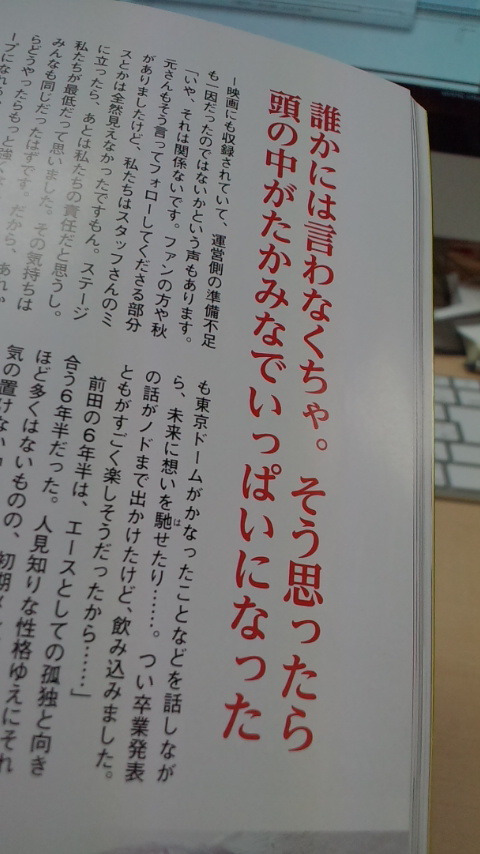 誰かには言わなくちゃ。そう思ったら
頭の中がたかみなでいっぱいになった
―映画にも収録されていて、運営側の準備不足
も一因だったのではないかという声もあります。
「いや、それは関係ないです。ファンの方や秋
元さんもそう言ってフォローしてくださる部分
がありましたけど、私たちはスタッフさんのミ
スとかは全然見えなかったですもん。ステージ
に立ったら、あとは私たちの責任だと思うし。
私たちが最低だって思いました。その気持ちは
みんなも同じだったはずです。だから、あれ
らどうやったらもっと強い
ープになれる
も東京ドームがかなったことなどを話しなが
ら、未来に想いを馳せたり……。つい卒業発表
の話がノドまで出かけたけど、飲み込みました。
ともがすごく楽しそうだったから……」
前田の6年半は、エースとしての孤独と向き
合う6年半だった。人見知りな性格ゆえにそれ
ほど多くはないものの、初期
気の置けない